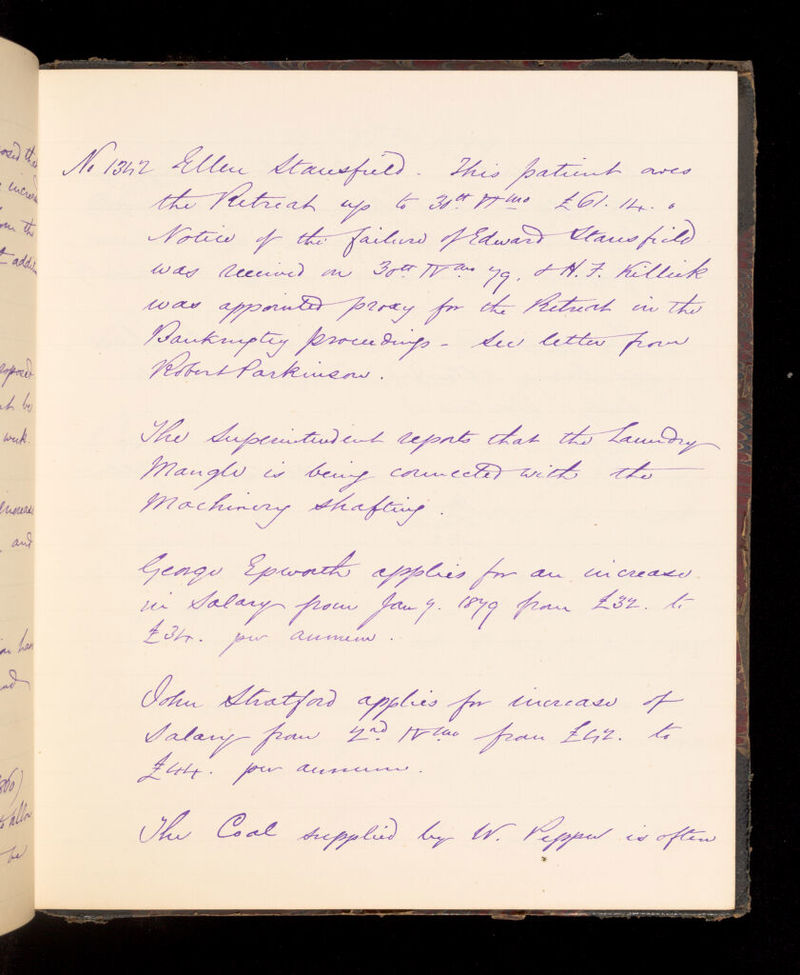 No 1342 Ellen Stansfield. This patient owes
the Retreat up to 30th IV mo £61. 14. 0
Notice of the failure of Edward Stansfield
was received on 30th IV mo 79. & H. F. Killick
was appointed proxy for the Retreat in the
Bankruptcy proceedings - See letter from
Robert Parkinson.
The Superintendent reports that the Laundry
Mangle is being connected with the
Machinery shafting.
George Epworth applies for an increase
in Salary from Jany. 1879 from £32. to
£34. per annum.
John Stratford applies for increase of
Salary from 2nd IV mo from £42. to
£44. per annum.
The Coal supplied by W. Pepper is often